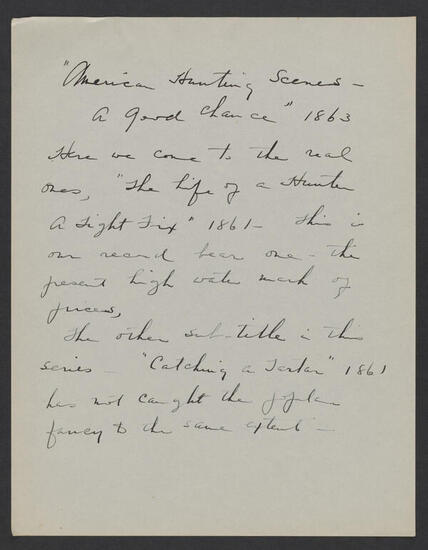 "American Hunting Scenes –
A Good Chance" 1863
Here we come to the real
ones, "The Life of a Hunter
A Tight Fix" 1861 – This is
our record bear one – the
present high water mark of
prices,
The other sub-title in this
series – "Catching a Tartar" 1861
has not caught the popular
fancy to the same extent –